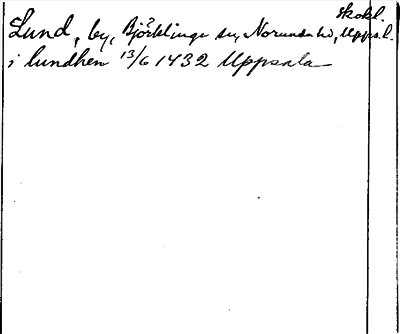 Skokl.
Lund, by, Björklinge sn, Norunda hd, Upps.l.
?
i lundhen 13/6 1432 Uppsala